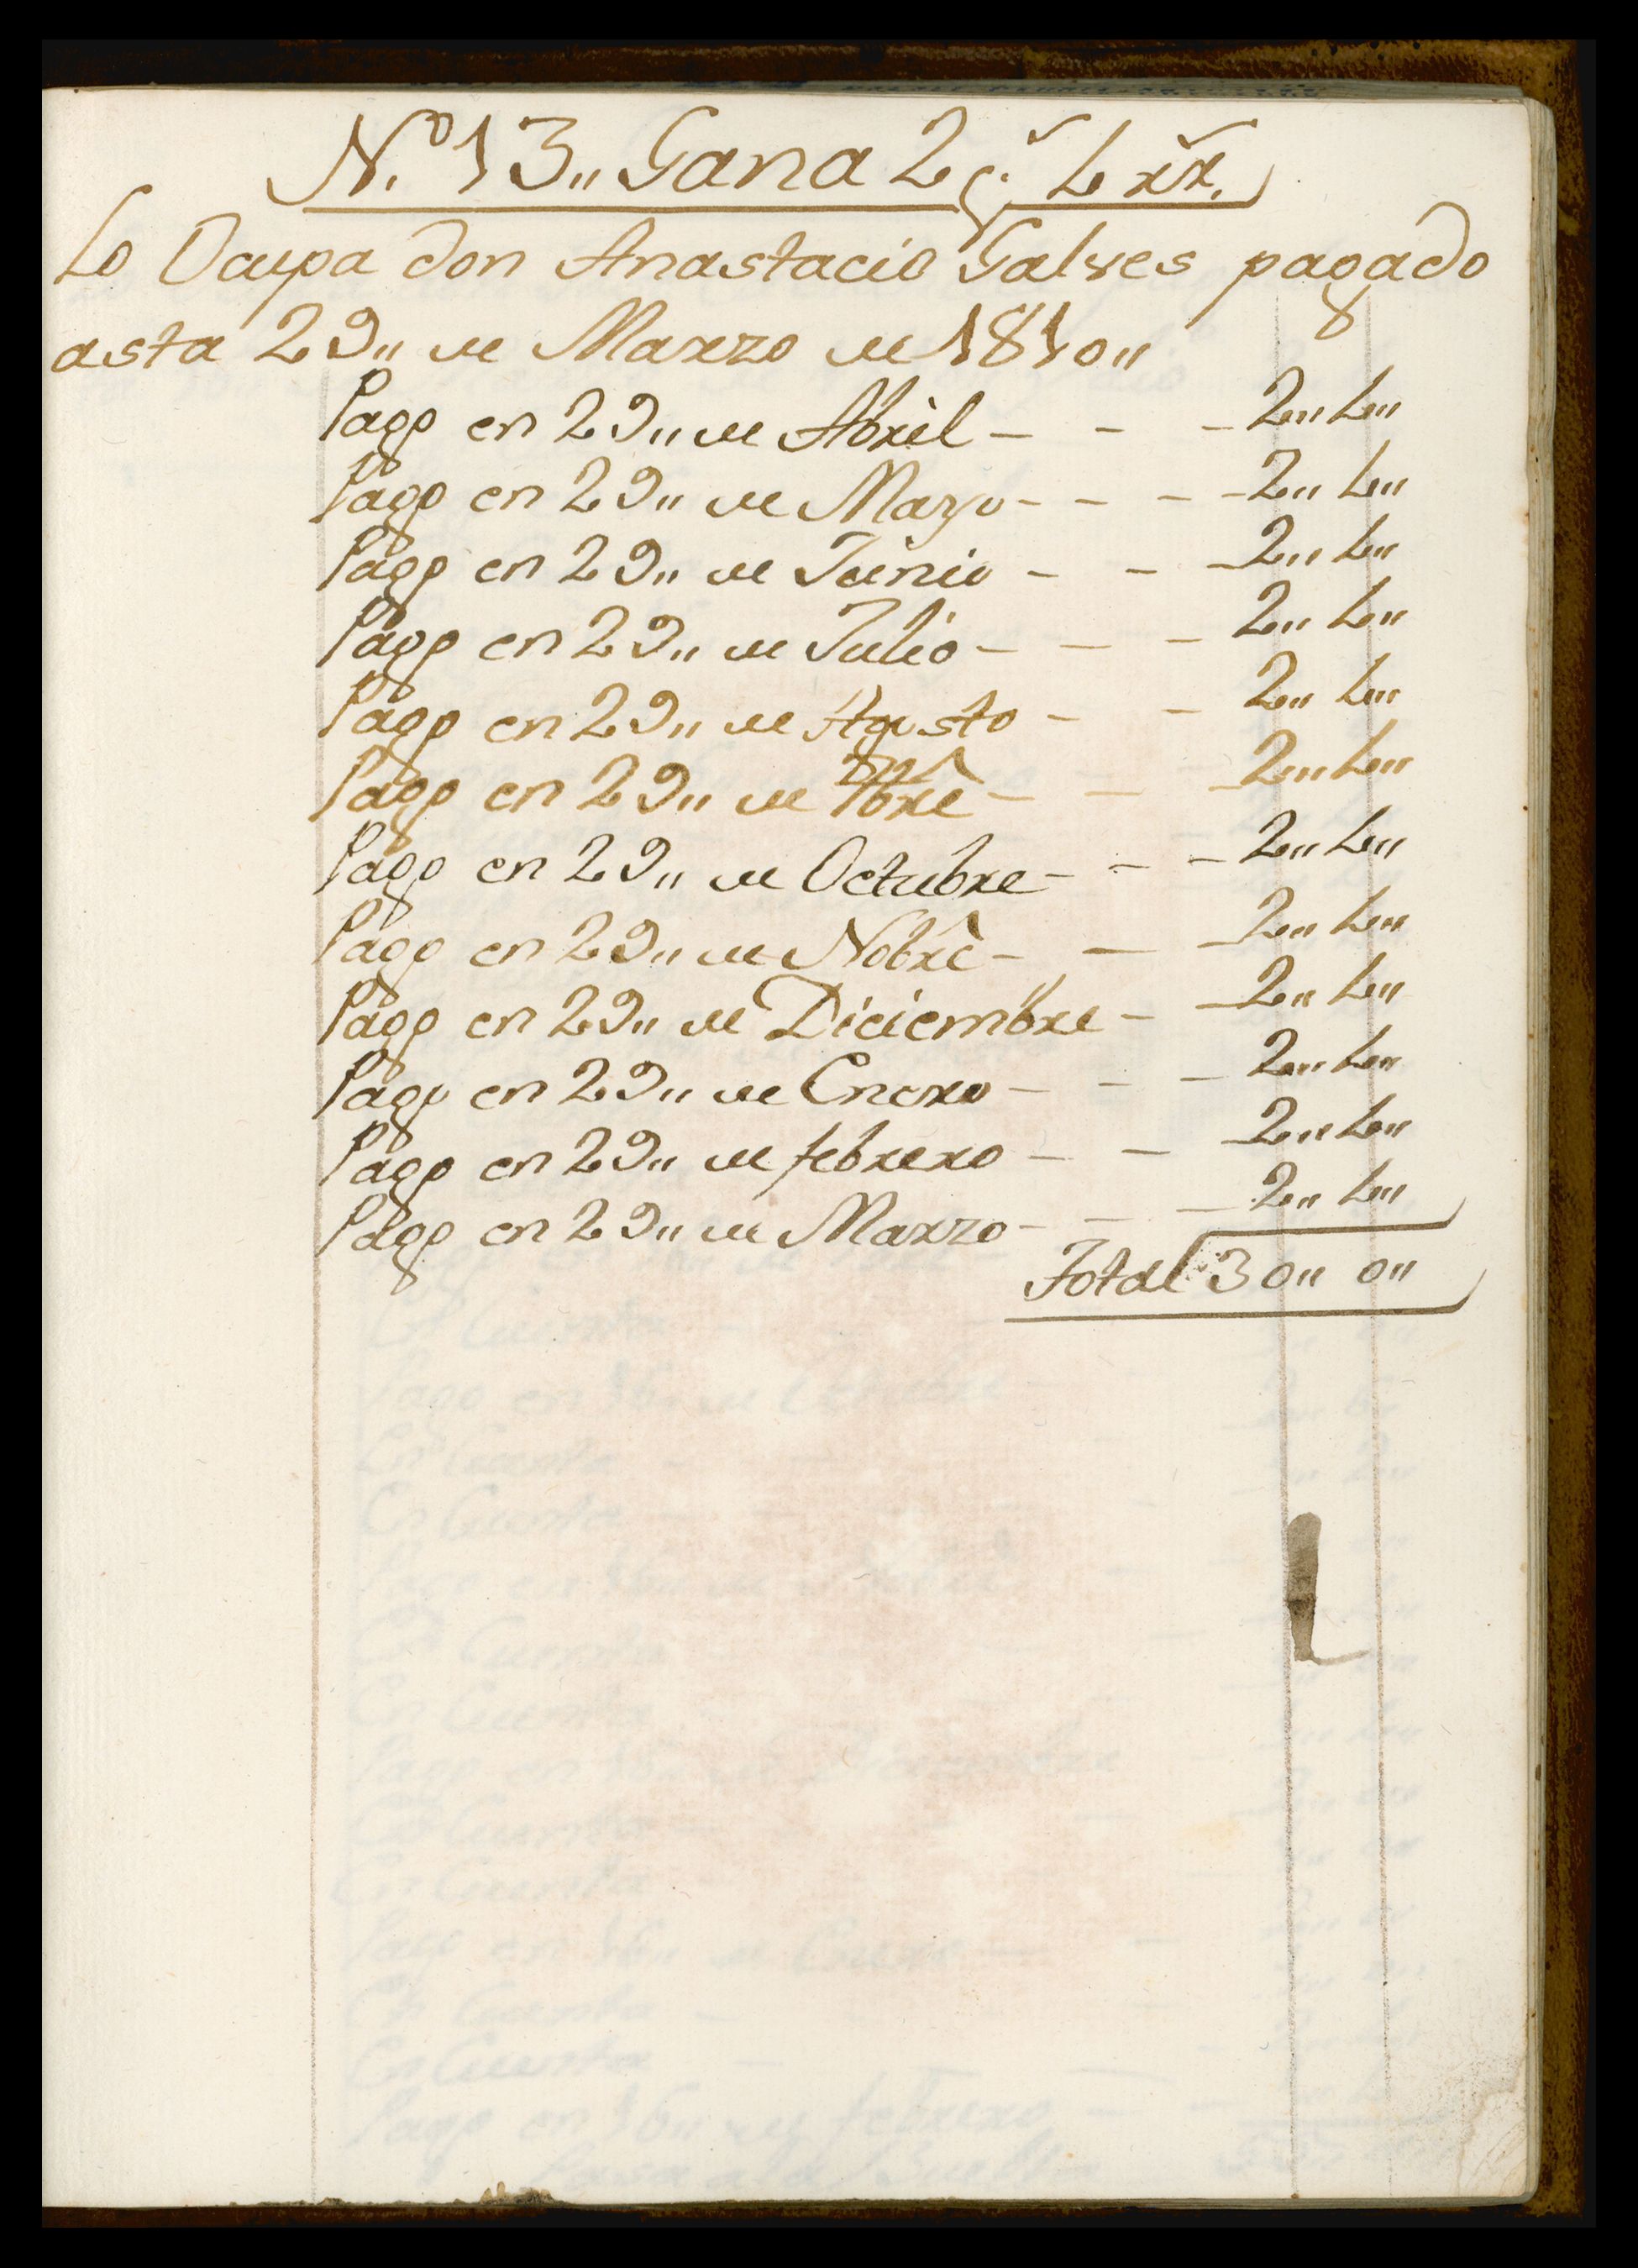 N.º 13,, Gana 2 p.s 4 rr.
Lo Ocupa don Anastacio Galves pagado
asta 29,, de Marzo de 1810,,
Pago en 29,, de Abril - - - 2,, 4,,
Pago en 29,, de Mayo - - - - 2,, 4,,
Pago en 29,, de Junio - - - 2,, 4,,
Pago en 29,, de Julio - - - 2,, 4,,
Pago en 29,, de Agosto - - 2,, 4,,
Pago en 29,, de 7bre - - - 2,, 4,,
Pago en 29,, de Octubre - - - 2,, 4,,
Pago en 29,, de Nobre - - - 2,, 4,,
Pago en 29,, de Diciembre - - 2,, 4,,
Pago en 29,, de Enero - - - 2,, 4,,
Pago en 29,, de febrero - - - 2,, 4,,
Pago en 29,, de Marzo - - - 2,, 4,,
Total 30,, 0,,